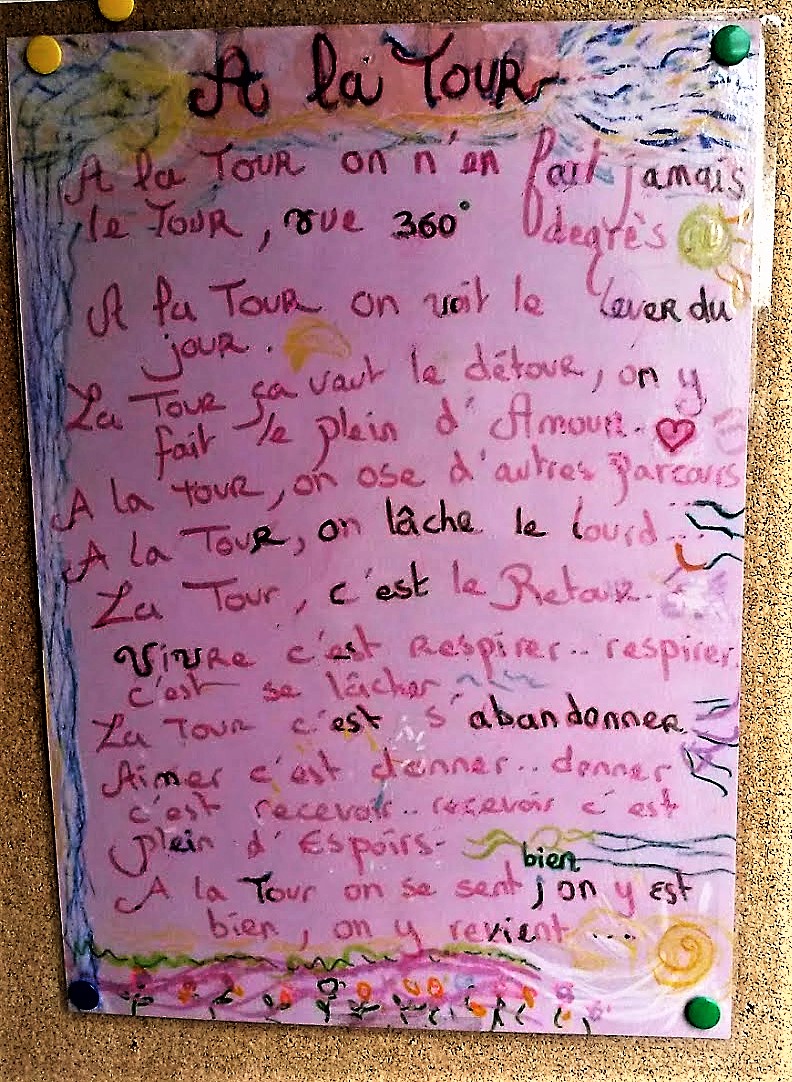 A la TOUR
A la TOUR on n'en fait jamais
le TOUR, vue 360° degrès
A la TOUR on voit le lever du
jour.
La TOUR ça vaut le détour, on y
fait le plein d'Amour.
A la TOUR, on ose d'autres parcours
A la TOUR, on lâche le lourd...
La Tour, c'est le Retour..
Vivre c'est Respirer.. respirer
c'est se lâcher
La TOUR c'est s'abandonner
Aimer c'est donner.. donner
c'est recevoir.. recevoir c'est
plein d'Espoirs-
bien
A la Tour on se sent, on y est
bien, on y revient ....